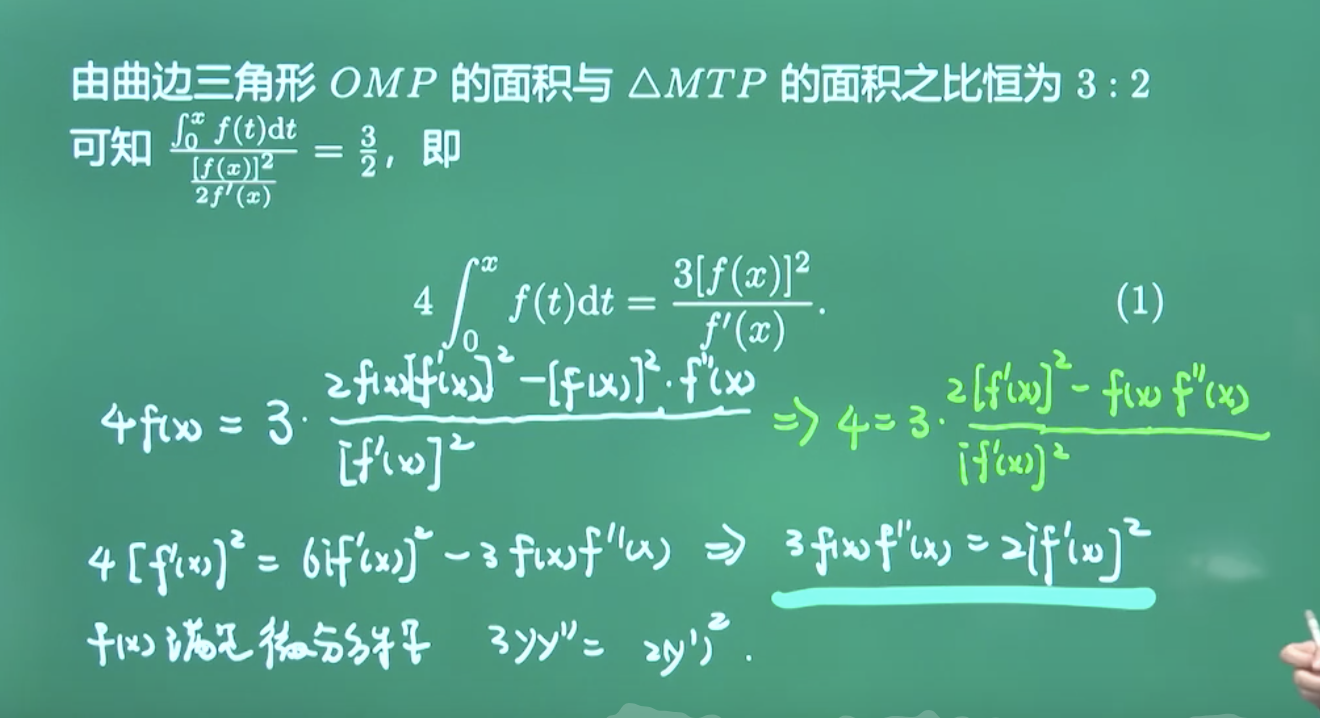 由曲边三角形 OMP 的面积与 △MTP 的面积之比恒为 3 : 2
可知 \frac{\int_0^x f(t)dt}{\frac{[f(x)]^2}{2f'(x)}} = \frac{3}{2}, 即
4\int_0^x f(t)dt = \frac{3[f(x)]^2}{f'(x)}. (1)
4f(x) = 3 · \frac{2f(x)[f'(x)]^2 - [f(x)]^2 · f''(x)}{[f'(x)]^2} ⇒ 4 = 3 · \frac{2[f'(x)]^2 - f(x)f''(x)}{[f'(x)]^2}
4[f'(x)]^2 = 6[f'(x)]^2 - 3f(x)f''(x) ⇒ 3f(x)f''(x) = 2[f'(x)]^2
f(x)满足微分方程 3yy'' = 2(y')^2.